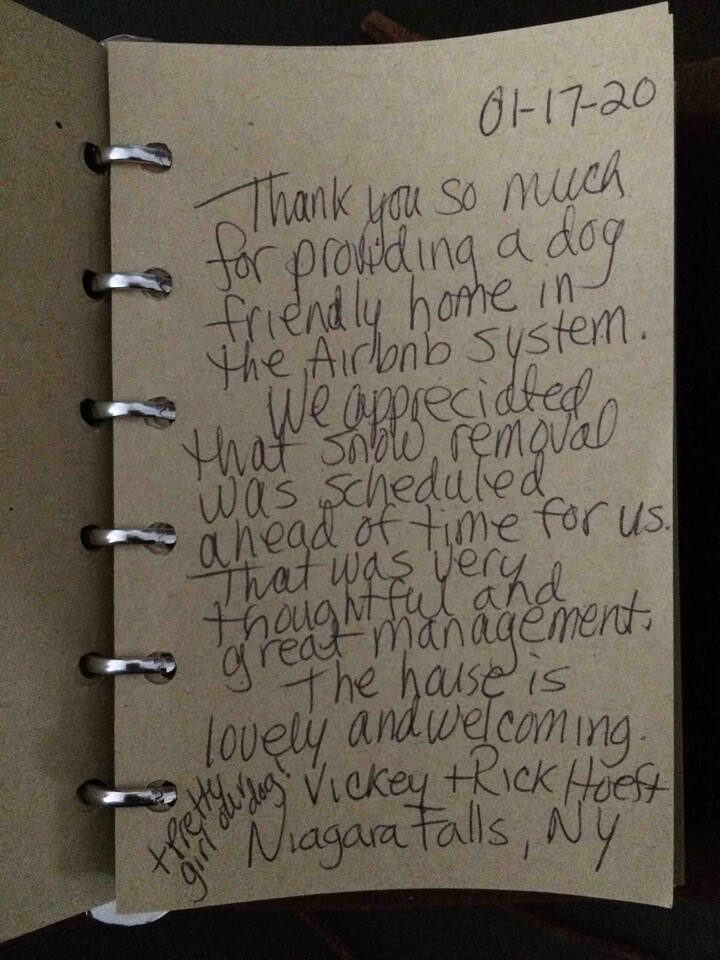 01-17-20
Thank you so much
for providing a dog
friendly home in
the Airbnb system.
We appreciated
that snow removal
was scheduled
ahead of time for us.
That was very
thoughtful and
great management.
The house is
lovely and welcoming.
Vickey + Rick Hoeft
+ Pretty
girl our dog!
Niagara Falls, NY